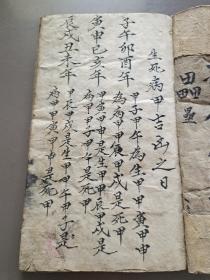 生死病甲吉凶之日
子午卯酉年
甲子甲午為生甲 甲寅甲申
為病甲 甲辰甲戌是死甲
寅申巳亥年
甲寅甲申是生甲 甲辰甲戌是
為病甲 甲子甲午是死甲
辰戌丑未年
甲辰甲戌是生甲 甲午甲子是
為病甲 甲寅甲申是死甲